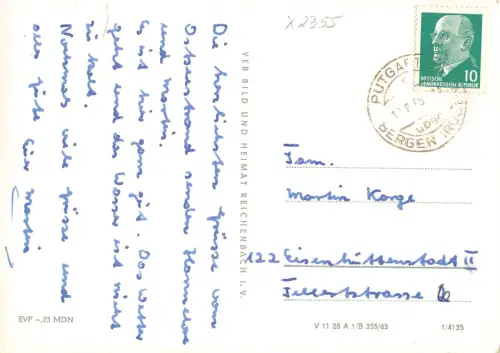 X2355
Die herzlichsten Grüsse vom
Ostseestrand senden Hannelore
und Martin.
Es ist hier ganz gut. Das Wetter
geht und das Wasser ist nicht
zu kalt.
Nochmals viele Grüsse und
alles gute Eier Martin
VEB BILD UND HEIMAT REICHENBACH I. V.
10
DEUTSCHE
DEMOKRATISCHE REPUBLIK
PUTGART
BERGEN (RÜG
Fam.
Martin Korge
122 Eisenhüttenstadt II
Fellertstrasse
EVP –,25 MDN
V 11 28 A 1/B 355/65
1/4135